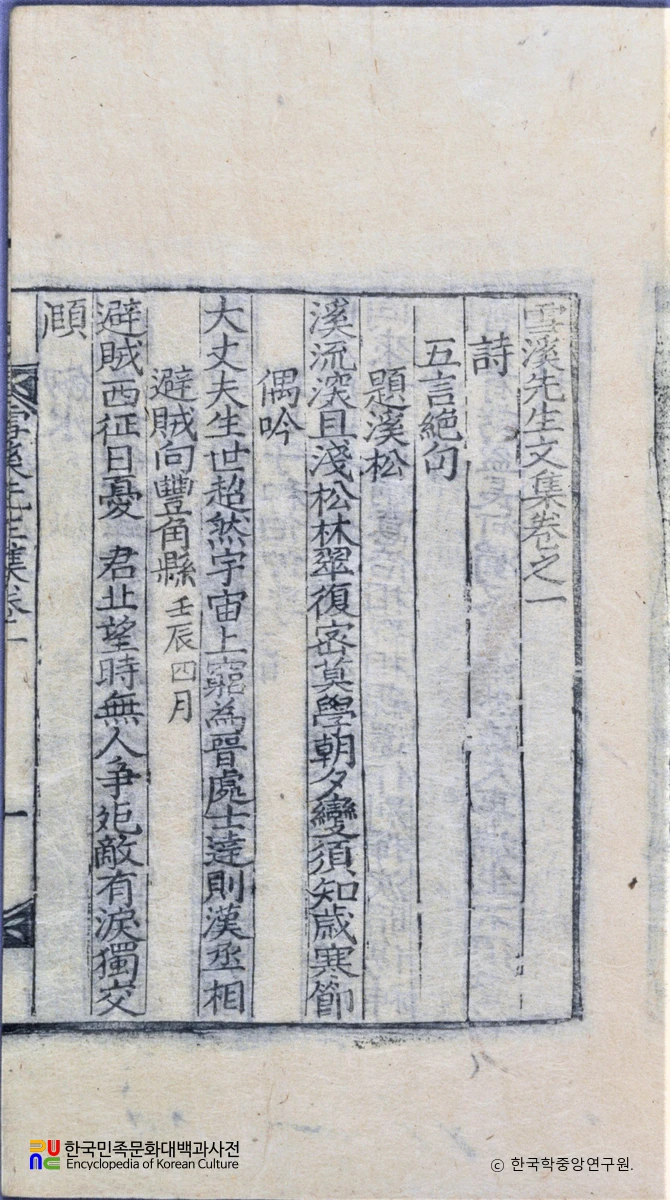 雪溪先生文集卷之一
詩
五言絶句
題溪松
溪流深且淺松林翠復密莫學朝夕變須知歲寒節
偶吟
大丈夫生世超然宇宙上窮為晉處士達則漢丞相
避賊向豐角縣 壬辰四月
避賊西征日憂 君北望時無人爭死敵有淚獨交
頤
雪溪先生集卷一
一
한국민족문화대백과사전
Encyclopedia of Korean Culture
ⓒ 한국학중앙연구원.